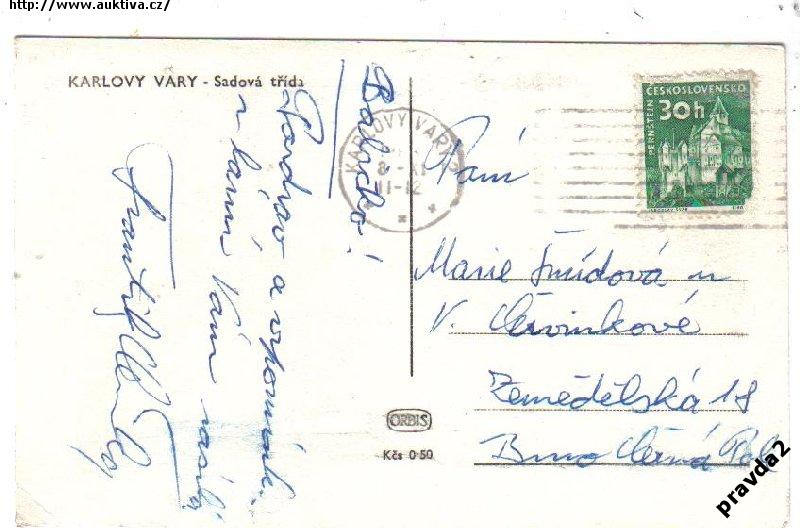 http://www.auktiva.cz/
KARLOVY VARY - Sadová třída
Babičko!
Pozdrav a vzpomínku
z lázní Vám zasílá
František
KARLOVY VARY
11-12
ČESKOSLOVENSKO
30h
PERNŠTEJN
Paní
Marie Šmídová u
V. Červinkové
Zemědělská 18
Brno Černá Pole
ORBIS
Kčs 0·50
pravda2